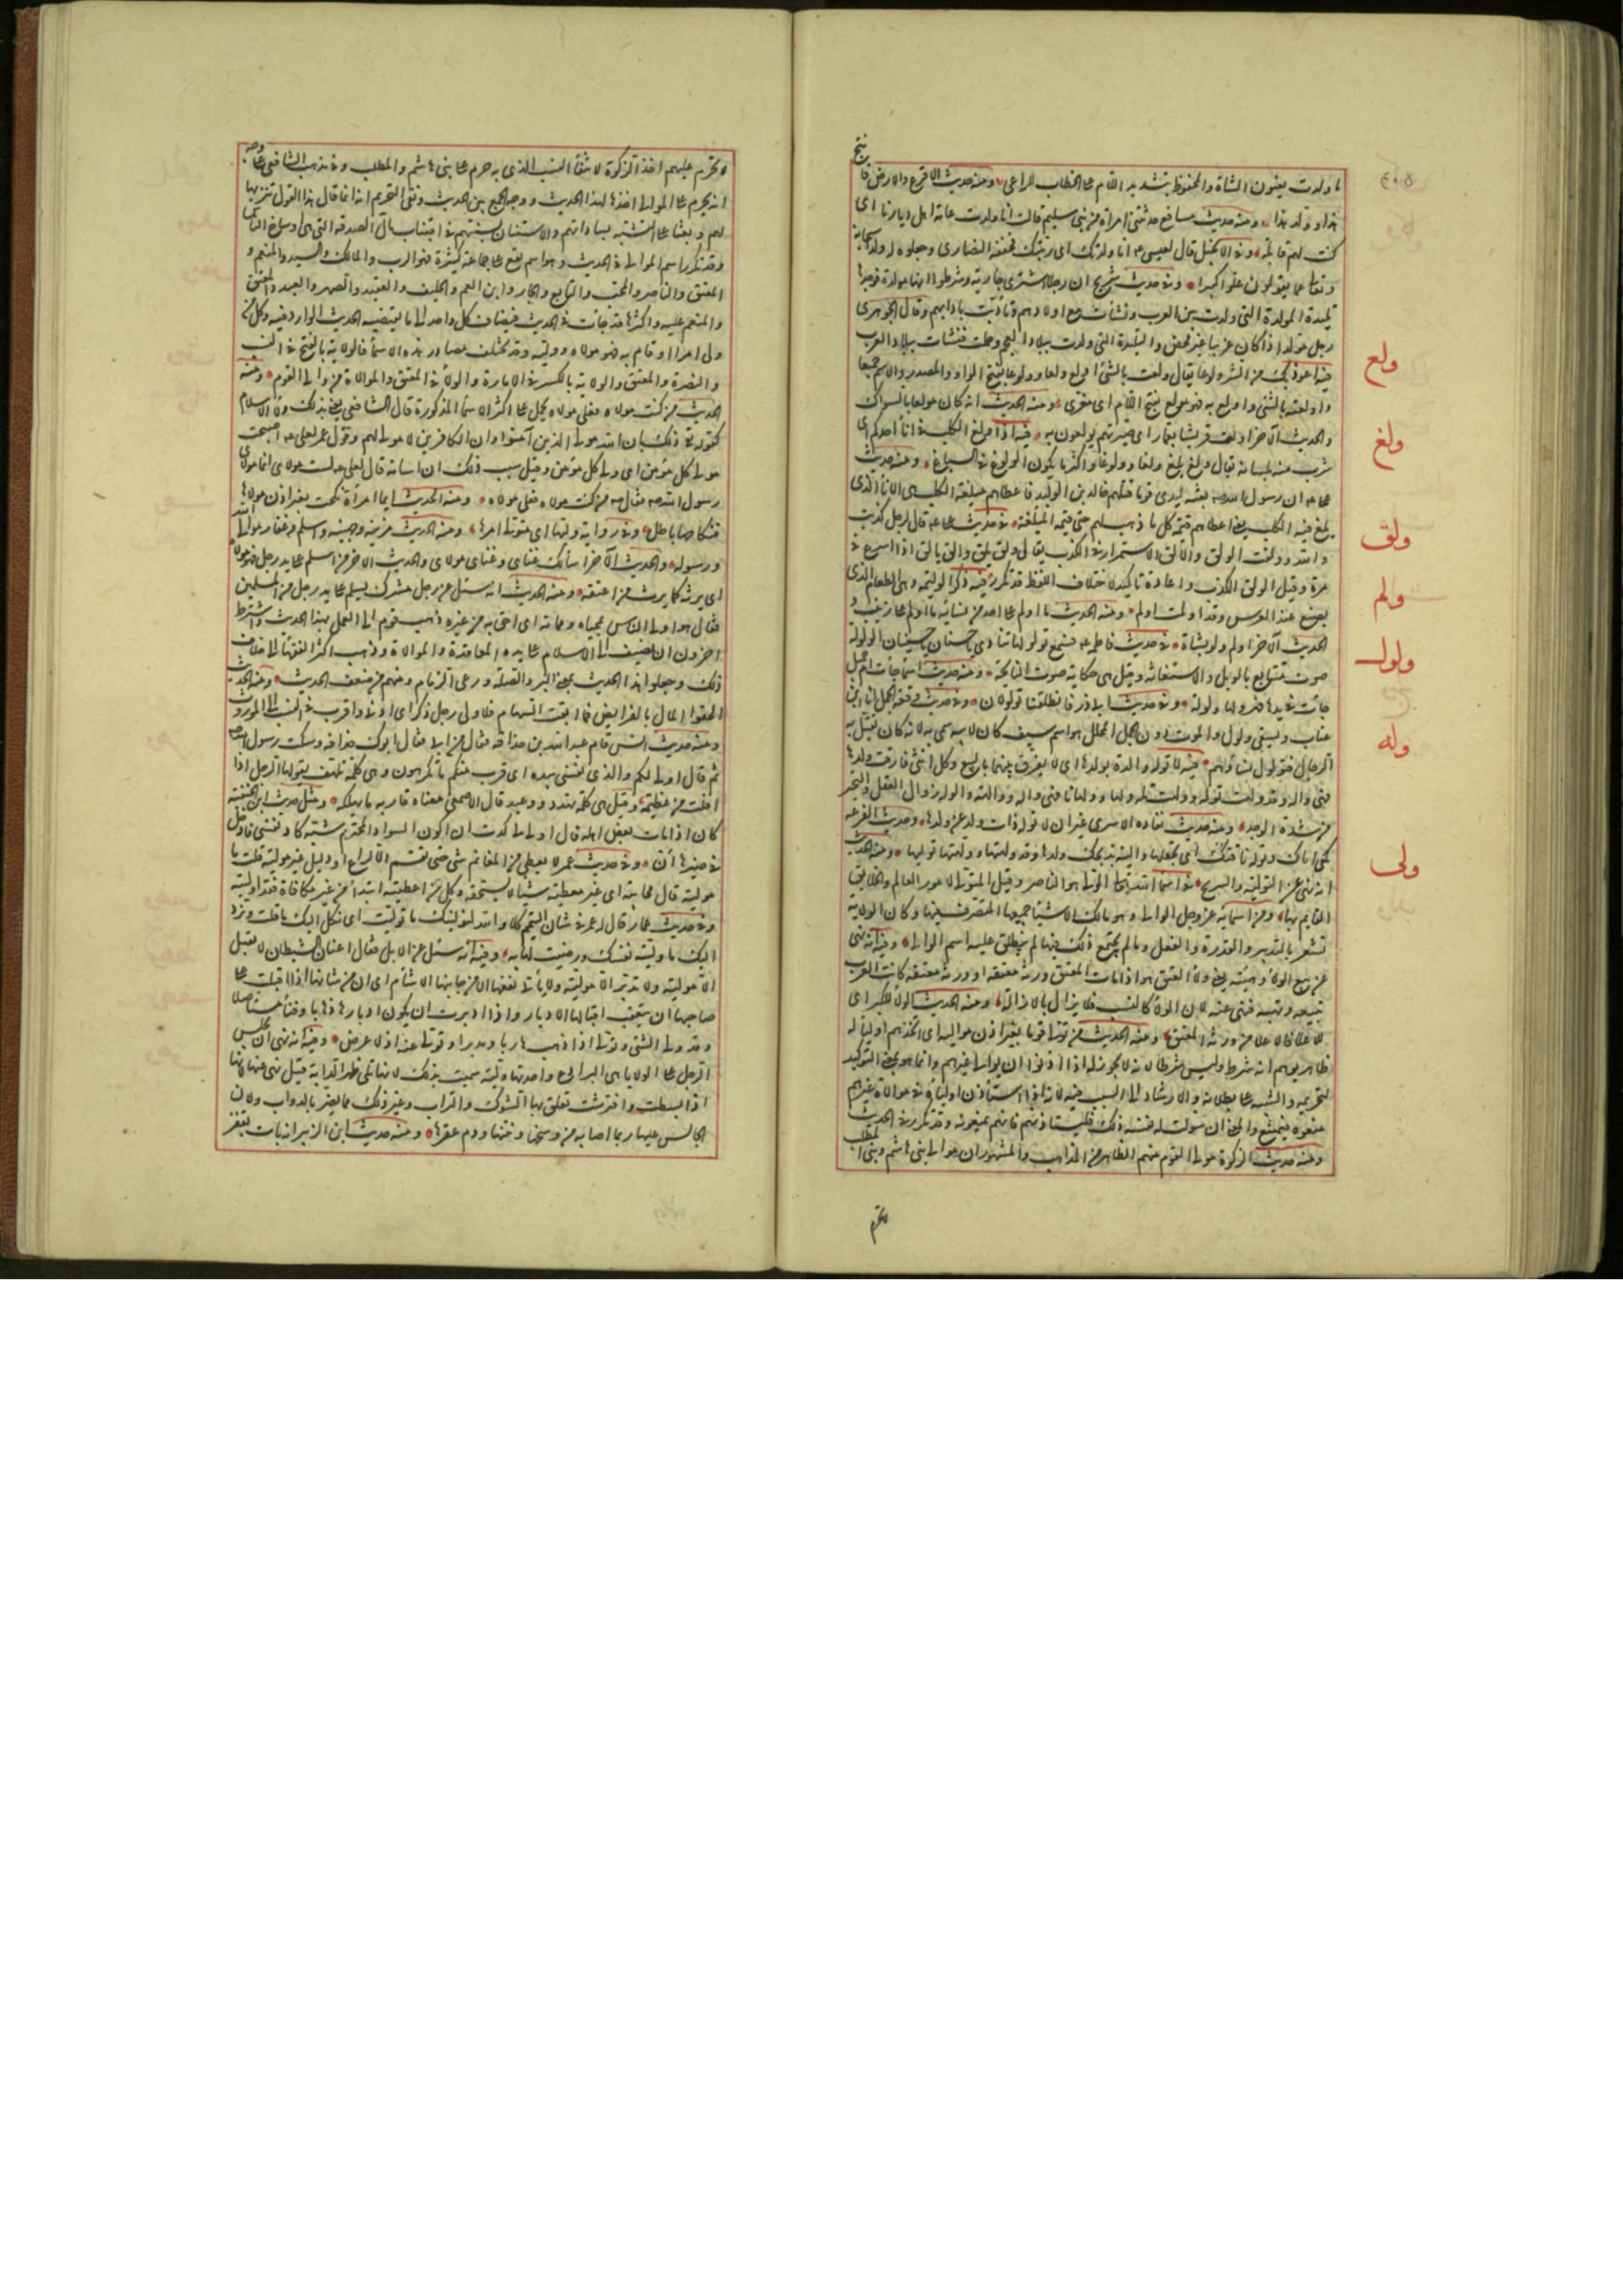 ما ولدت يعنون الشاة والمحفوظ بتشديد اللام على الخطاب للراعي ومنه حديث الاقرع والابرص فانتج
هذا وولد هذا ومنه حديث مسافع حدثتني امراة من بني سليم قالت انا ولدت عامة اهل ديارنا اى
كنت لهم قابلة وفى الانجيل قال لعيسى عم انا ولدتك اى ربيتك فخففه النصارى وجعلوه له ولدا سبحانه
وتعالى عما يقولون علوا كبيرا وفى حديث شريح ان رجلا اشترى جارية وشرطوا انها مولدة فوجدها
تليدة المولدة التى ولدت بين العرب ونشأت مع اولادهم وتأدبت بادابهم وقال الجوهرى
رجل مولد اذا كان عربيا غير محض والتليدة التى ولدت ببلاد العجم وحملت فنشأت ببلاد العرب
ولع
فيه اعوذ بك من الشر ولوعا يقال ولعت بالشئ اولع ولعا وولوعا بفتح الواو والمصدر والاسم جميعا
واولعته بالشئ واولع به فهو مولع بفتح اللام اى مغرى ومنه الحديث انه كان مولعا بالسواك
ولغ
والحديث الآخر اولعت قريشا بعمار اى صيرتهم يولعون به فيه اذا ولغ الكلب فى اناء احدكم اى
شرب منه بلسانه يقال ولغ يلغ ولغا وولوغا واكثر ما يكون الولوغ فى السباع ومنه حديث
على عم ان رسول الله صم بعثه ليدى قوما قتلهم خالد بن الوليد فاعطاهم ميلغة الكلب هى الاناء الذى
يلغ فيه الكلب يعنى اعطاهم قيمة كل ما ذهب لهم حتى قيمة الميلغة
ولق
فى حديث على عم قال لرجل كذبت
والله وولقت الولق والالق الاستمرار فى الكذب يقال ولق يلق والق يالق اذا اسرع فى
مره وقيل الولق الكذب واعاده تاكيدا لاختلاف اللفظ قد تكرر
ولم
فيه ذكر الوليمة وهى الطعام الذى
يصنع عند العرس وقد اولمت اولم ومنه الحديث ما اولم على احد من نسائه ما اولم على زينب و
ولول
الحديث الآخر اولم ولو بشاة فى حديث فاطمة عم فسمع تولولها تنادى يا حسنان يا حسينان الولولة
صوت متتابع بالويل والاستغاثة وقيل هى حكاية صوت النايحة ومنه حديث اسماء جاءت ام جميل
جاءت فى يدها فهر ولها ولولة وفى حديث ابى ذر فانطلقتا تولولان وفى حديث وقعة الجمل انا ابن
عتاب وسيفى ولول والموت دون الجمل المجلل هو اسم سيف كان لابيه سمى به لانه كان يقتل به
وله
الرجال فتولول نساؤهم فيه لا توله والدة بولدها اى لا يفرق بينهما بالبيع وكل انثى فارقت ولدها
فهى واله وقد ولهت توله وولهت تله ولها وولهانا فهى والهة وواله والوله زوال العقل والتحير
من شدة الوجد ومنه حديث نقادة الاسدى غير ان لا توله ذات ولد عن ولدها وحديث الفرعة
تكفى اناك وتوله ناقتك اى تجعلها والهة بذبحك ولدها وقد ولهتها وولهتها توليها ومنه الحديث
ولى
انه نهى عن التوليه والتبريح فى اسماء الله تعالى الولى هو الناصر وقيل المتولى لامور العالم والخلايق
القايم بها ومن اسمائه عز وجل الوالى وهو مالك الاشياء جميعها المتصرف فيها وكان الولاية
تشعر بالتدبير والقدرة والفعل وما لم يجتمع ذلك فيها لم ينطلق عليه اسم الوالى وفيه انه نهى
عن بيع الولاء وهبته يعنى ولاء العتق هو اذا مات المعتق ورثه معتقه او ورثة معتقه كانت العرب
تبيعه وتهبه فنهى عنه لان الولاء كالنسب فلا يزال بالازالة ومنه الحديث الولاء للكبر اى
للاعلى فالاعلى من ورثة المعتق ومنه الحديث من تولى قوما بغير اذن مواليه اى اتخذهم اولياء له
ظاهره يوهم انه شرط وليس شرطا لانه لا يجوز له اذا اذنوا ان يوالى غيرهم وانما هو بمعنى التوكيد
لتحريمه والتنبيه على بطلانه والارشاد الى السبب فيه لانه اذا استأذن اولياءه فى موالاة غيرهم
منعوه فيمتنع والمعنى ان سولت له نفسه ذلك فليستاذنهم فانهم يمنعونه وقد تكرر فى الحديث
ومنه حديث الزكوة مولى القوم منهم الظاهر من المذاهب والمشهور ان موالى بنى هاشم وبنى المطلب
لا تحرم
لا تحرم عليهم اخذ الزكوة لانتفاء النسب الذى به حرم على بنى هاشم والمطلب وفى مذهب الشافعى على وجه
انه يحرم على الموالى اخذها لهذا الحديث ووجه الجمع بين الحديث ونفى التحريم انه انما قال هذا القول تنزيها
لهم وبعثا على التشبه بساداتهم والاستنان بسنتهم فى اجتناب مال الصدقة التى هى اوساخ الناس
وقد تكرر اسم المولى فى الحديث وهو اسم يقع على جماعة كثيرة فهو الرب والمالك والسيد والمنعم و
المعتق والناصر والمحب والتابع والجار وابن العم والحليف والعقيد والصهر والعبد والمعتق
والمنعم عليه واكثرها قد جاءت فى الحديث فيضاف كل واحد الى ما يقتضيه الحديث الوارد فيه وكل من
ولى امرا او قام به فهو مولاه ووليه وقد تختلف مصادر هذه الاسماء فالولاية بالفتح فى النسب
والنصرة والمعتق والولاية بالكسر فى الامارة والولاء فى المعتق والموالاة من والى القوم ومنه
الحديث من كنت مولاه فعلى مولاه يحمل على اكثر الاسماء المذكورة قال الشافعى يعنى بذلك ولاء الاسلام
كقوله تع ذلك بان الله مولى الذين آمنوا وان الكافرين لا مولى لهم وقول عمر لعلى عم اصبحت
مولى كل مؤمن اى ولى كل مؤمن وقيل سبب ذلك ان اسامة قال لعلى عم لست مولاى انما مولاى
رسول الله صم فقال صم من كنت مولاه فعلى مولاه ومنه الحديث ايما امرأة نكحت بغير اذن مولاها
فنكاحها باطل وفى رواية وليها اى متولى امرها ومنه الحديث مزينة وجهينة واسلم وغفار موالى الله
ورسوله والحديث الآخر اسألك غناى وغنى مولاى والحديث الاخر من اسلم على يده رجل فهو مولاه
اى يرثه كما يرث من اعتقه ومنه الحديث انه سئل عن رجل مشرك يسلم على يد رجل من المسلمين
فقال هو اولى الناس بمحياه ومماته اى احق به من غيره ذهب قوم الى العمل بهذا الحديث واشترط
اخرون ان يضيف الى الاسلام على يده المعاقدة والموالاة وذهب اكثر الفقهاء الى خلاف
ذلك وجعلوا هذا الحديث بمعنى البر والصلة ورعى الذمام ومنهم من ضعف الحديث ومنه الحديث
الحقوا المال بالفرايض فما ابقت السهام فلاولى رجل ذكر اى ادنى واقرب فى النسب الى الموروث
ومنه حديث انس قام عبد الله بن حذافة فقال من ابى فقال ابوك حذافة وسكت رسول الله صم
ثم قال اولى لكم والذى نفسى بيده اى قرب منكم ما تكرهون وهى كلمة تلهف يقولها الرجل اذا
افلت من عظيمة وقيل هى كلمة تهدد ووعيد قال الاصمعى معناه قاربه ما يهلكه ومثله حديث ابن الحنفية
كان اذا مات بعض اهله قال اولى لى كدت ان اكون السواد المخترم شبه كاد بعسى فادخل
فى خبرها أن وفى حديث عمر لا يعطى من المغانم شئ حتى تقسم الا لراع او دليل غير موليه قلت ما
موليه قال محابيه اى غير معطيه شيئا لا يستحقه وكل من اعطيته ابتداء من غير مكافاة فقد اوليته
وفى حديث عمار قال له عمر فى شان التيمم كلا والله لنولينك ما توليت اى نكل اليك ما قلت ونرد
اليك ما وليته نفسك ورضيت لها به وفيه انه سئل عن الابل فقال اعنان الشيطان لا تقبل
الا مولية ولا تدبر الا مولية ولا يأتى نفعها الا من جانبها الاشأم اى ان من شانها اذا اقبلت على
صاحبها ان يتعقب اقبالها الادبار واذا ادبرت ان يكون ادبارها ذهابا وفناء مستاصلا
وقد ولى الشئ وتولى اذا ذهب هاربا ومدبرا وتولى عنه اذا اعرض وفيه انه نهى ان يجلس
الرجل على الولايا هى البراذع واحدتها ولية سميت بذلك لانها تلى ظهر الدابة قيل نهى عنها لانها
اذا بسطت وافترشت تعلق بها الشوك والتراب وغير ذلك مما يضر بالدواب ولان
الجالس عليها ربما اصابه من وسخها ونتنها ودم عقرها ومنه حديث ابن الزبير انه بات بقفر